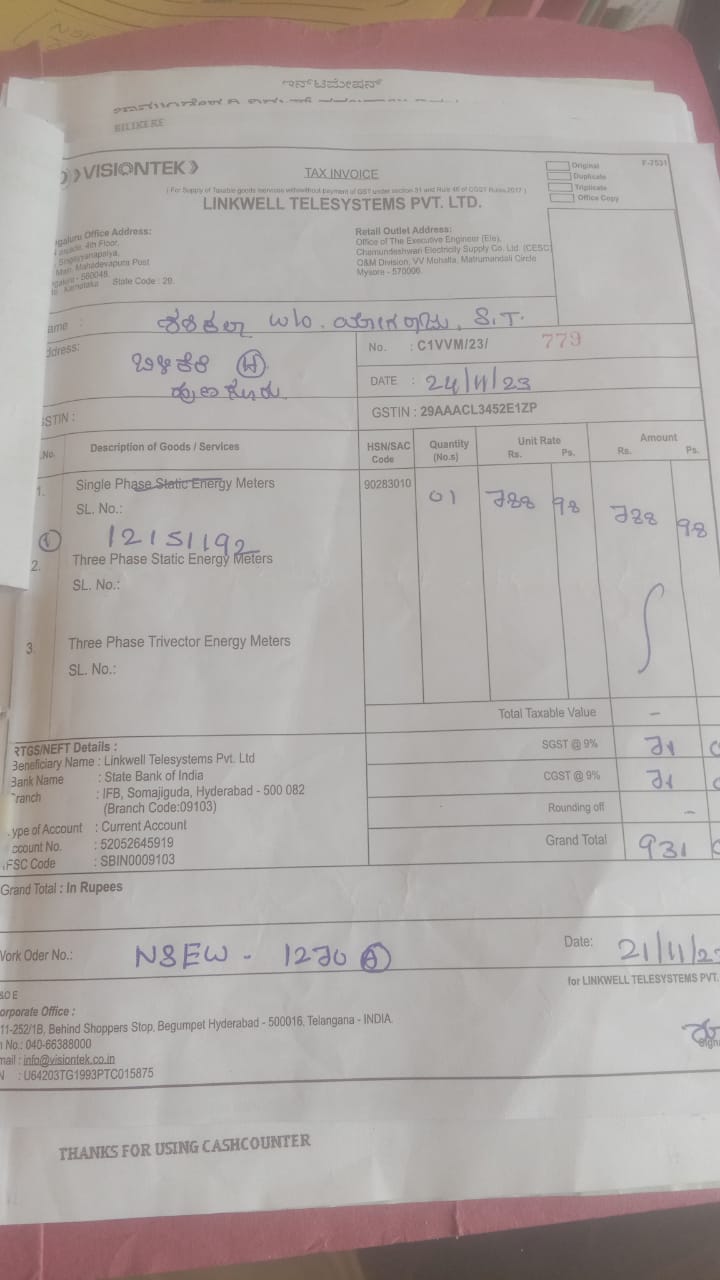 BILIKERE
VISIONTEK
TAX INVOICE
( For Supply of Taxable goods /services with/without payment of GST under section 31 and Rule 46 of CGST Rules 2017 )
LINKWELL TELESYSTEMS PVT. LTD.
Original
Duplicate
Triplicate
Office Copy
F-7531
Office Address:
4th Floor,
Singayyanapalya,
Main, Mahadevapura Post
- 560048.
Karnataka State Code : 29.
Retail Outlet Address:
Office of The Executive Engineer (Ele),
Chamundeshwari Electricity Supply Co. Ltd. (CESC)
O&M Division, VV Mohalla, Matrumandali Circle
Mysore - 570006.
ame : W/o. S.T.
ddress:
No. : C1VVM/23/ 779
DATE : 24/11/23
STIN :
GSTIN : 29AAACL3452E1ZP
.No. Description of Goods / Services HSN/SAC Code Quantity (No.s) Unit Rate Rs. Ps. Amount Rs. Ps.
1. Single Phase Static Energy Meters 90283010 01 788 98 788 98
SL. No.:
① 12151192
2. Three Phase Static Energy Meters
SL. No.:
3. Three Phase Trivector Energy Meters
SL. No.:
Total Taxable Value -
SGST @ 9% 71
CGST @ 9% 71
Rounding off -
Grand Total 931
RTGS/NEFT Details :
Beneficiary Name : Linkwell Telesystems Pvt. Ltd
Bank Name : State Bank of India
ranch : IFB, Somajiguda, Hyderabad - 500 082
(Branch Code:09103)
ype of Account : Current Account
ccount No. : 52052645919
IFSC Code : SBIN0009103
Grand Total : In Rupees
Work Oder No.: NSEW - 1270 Ⓐ Date: 21/11/23
for LINKWELL TELESYSTEMS PVT.
&O E
orporate Office :
11-252/1B, Behind Shoppers Stop, Begumpet Hyderabad - 500016, Telangana - INDIA.
No.: 040-66388000
mail : info@visiontek.co.in
N : U64203TG1993PTC015875
THANKS FOR USING CASHCOUNTER